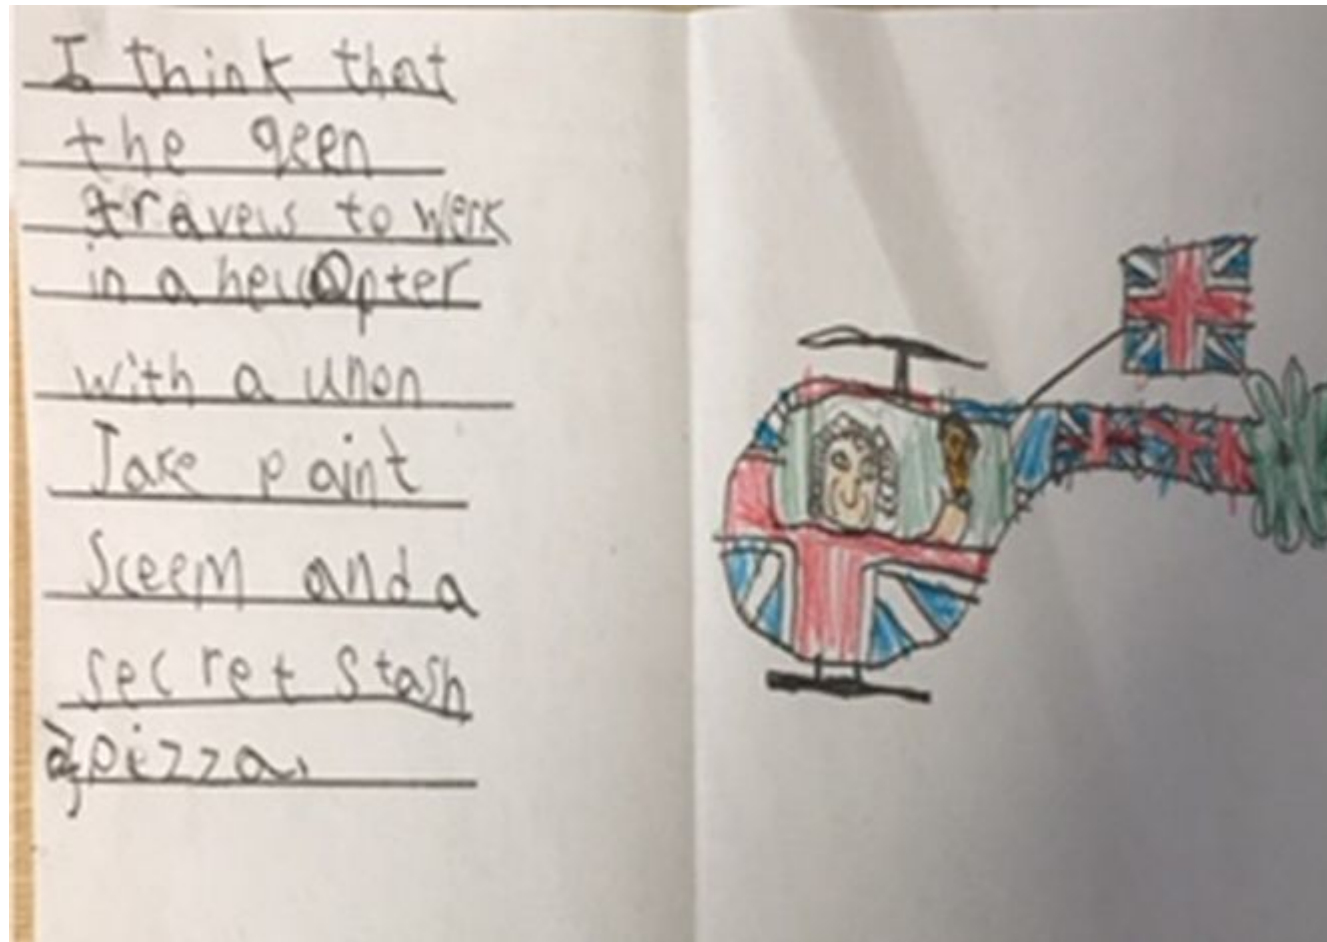 I think that
the qeen
travels to werk
in a helicopter
with a unon
Jake paint
sceem and a
secret stash
of pizza.